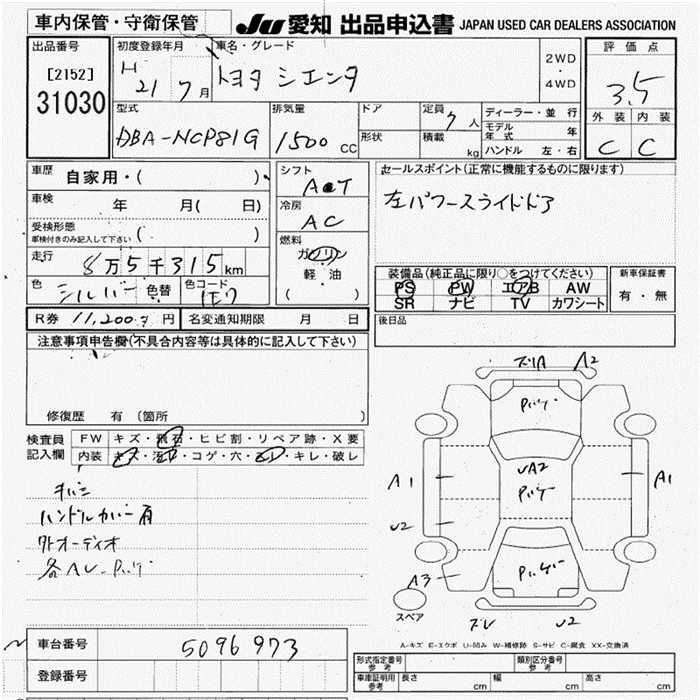 車内保管・守衛保管
JU 愛知 出品申込書 JAPAN USED CAR DEALERS ASSOCIATION
出品番号 初度登録年月 車名・グレード 2WD・4WD 評価点
[2152] H 21 7月 トヨタ シエンタ 3.5
31030 型式 排気量 ドア 定員 7人 ディーラー・並行 外装 内装
DBA-NCP81G 1500 CC 形状 積載 kg モデル年式 年 C C
ハンドル 左・右
車歴 自家用・( ) シフト AT セールスポイント(正常に機能するものに限ります)
車検 年 月( 日) 冷房 AC 左パワースライドドア
受検形態 ( )
車検付きのみ記入して下さい
燃料 ガソリン 軽・油 ( )
走行 8万5千315km
装備品(純正品に限り○をつけてください) 新車保証書
色 シルバー 色替 色コード
PS PW エアB AW 有・無
SR ナビ TV カワシート
R券 11,200 円 名変通知期限 月 日 後日品
注意事項申告欄(不具合内容等は具体的に記入して下さい)
修復歴 有 (箇所 )
検査員記入欄 FW キズ・飛石・ヒビ割・リペア跡・X要
内装 キズ・汚れ・コゲ・穴・・キレ・破レ
ハンドルカバー有
外オーディオ
A2
UA2
A1 A1
U2
A3
スペア
U2
A-キズ E-エクボ U-凹み W-補修跡 S-サビ C-腐食 XX-交換済
車台番号 5096973
登録番号
形式指定番号 参考 類別区分番号 参考
車庫証明用 参考 長さ cm 幅 cm 高さ cm